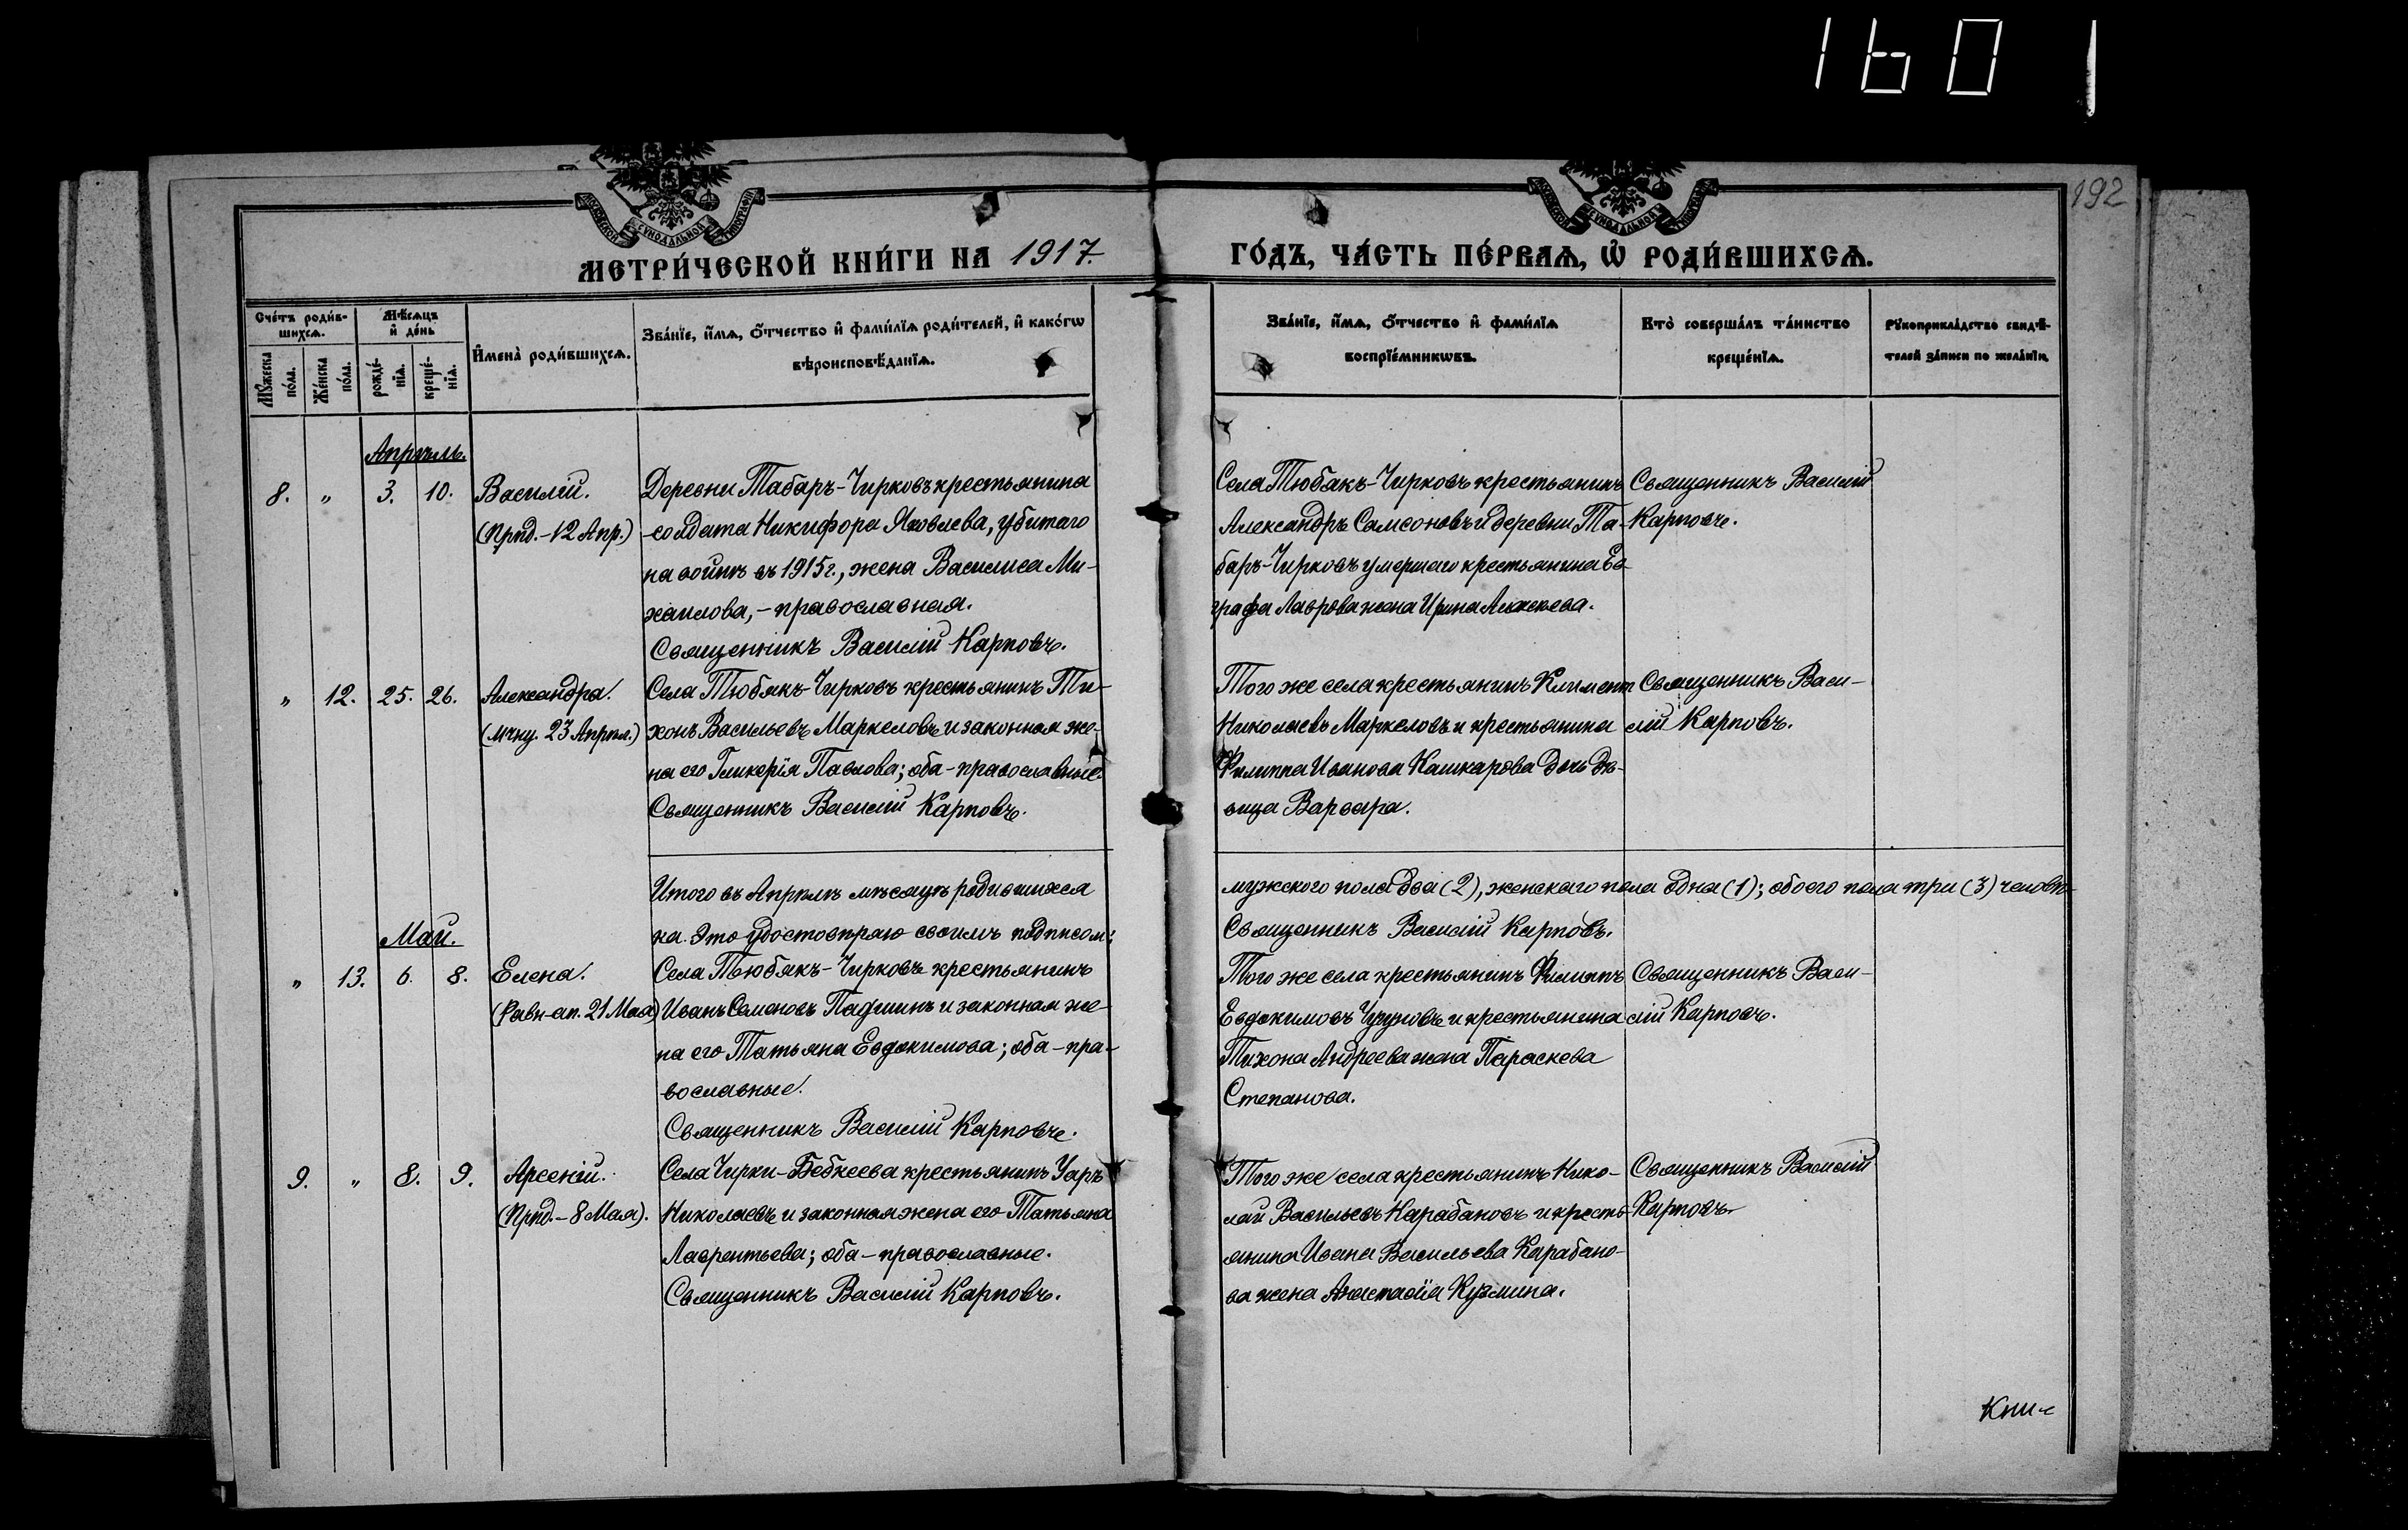 1601
192
МОСКОВСКОЙ СѴНОДАЛЬНОЙ ТИПОГРАФІИ
МОСКОВСКОЙ СѴНОДАЛЬНОЙ ТИПОГРАФІИ
МЕТРИ́ЧЕСКОЙ КНИ́ГИ НА 1917.
ГО́ДЪ, ЧА́СТЬ ПЕ́РВАѦ, Ѡ҆ РОДИ́ВШИХСѦ.
Сче́тъ роди́в-
шихсѧ.
Мѣ́сѧцъ
и҆ де́нь
Мꙋ́жеска
по́ла.
Же́нска
по́ла.
рожде́-
нїѧ.
креще́-
нїѧ.
И҆мена̀ роди́вшихсѧ.
Зва́нїе, и҆́мѧ, ѻ҆́тчество и҆ фами́лїѧ роди́телей, и҆ како́гѡ
вѣроисповѣ́данїѧ.
Зва́нїе, и҆́мѧ, ѻ҆́тчество и҆ фами́лїѧ
воспрїе́мникѡвъ.
Кто̀ соверша́лъ та́инство
креще́нїѧ.
Рꙋкоприкла́дство свидѣ́-
телей за́писи по жела́нїю.
Апрѣль.
8. „ 3. 10. Василій.
(Прпд.-12 Апр.)
Деревни Табаръ-Чирковъ крестьянина
солдата Никифора Яковлева, убитаго
на войнѣ въ 1915 г., жена Василиса Ми-
хаилова, - православная.
Священникъ Василій Карповъ.
Села Тюбякъ-Чирковъ крестьянинъ
Александръ Самсоновъ и деревни Та-
баръ-Чирковъ умершаго крестьянина Ев-
графа Лаврова жена Ирина Алексеева.
Священникъ Василій
Карповъ.
„ 12. 25. 26. Александра.
(мчну. 23 Апрѣл.)
Села Тюбякъ-Чирковъ крестьянинъ Ти-
хонъ Васильевъ Маркеловъ и законная же-
на его Гликерія Павлова; оба-православные.
Священникъ Василій Карповъ.
Того же села крестьянинъ Климент
Николаевъ Маркеловъ и крестьянина
Филиппа Иванова Кашкарова дочь дѣ-
вица Варвара.
Священникъ Васи-
лій Карповъ.
Итого въ Апрѣлѣ мѣсяцѣ родившихся
мужского пола два (2), женскаго пола одна (1); обоего пола три (3) человѣ-
ка. Это удостовѣряю своимъ подписом:
Священникъ Василій Карповъ.
Май.
„ 13. 6. 8. Елена.
(Равн-ап. 21 Мая)
Села Тюбякъ-Чирковъ крестьянинъ
Иванъ Семеновъ Падшинъ и законная же-
на его Татьяна Евдокимова; оба-пра-
вославные.
Священникъ Василій Карповъ.
Того же села крестьянинъ Филиппъ
Евдокимовъ Чугуновъ и крестьянина
Тихона Андреева жена Параскева
Степанова.
Священникъ Васи-
лій Карповъ.
9. „ 8. 9. Арсеній.
(Прпд.-8 Мая).
Села Чирки-Бебкеева крестьянинъ Уаръ
Николаевъ и законная жена его Татьяна
Лаврентьева; оба-православные.
Священникъ Василій Карповъ.
Того же села крестьянинъ Нико-
лай Васильевъ Карабановъ и кресть-
янина Ивана Васильева Карабано-
ва жена Анастасія Кузмина.
Священникъ Василій
Карповъ.
Кни-